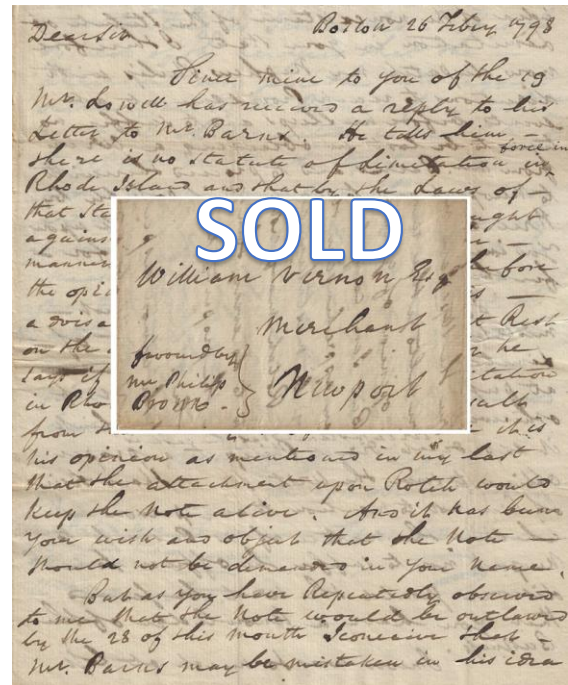 Dear Sir Boston 26 Febry 1798
Since mine to you of the 19
Mr. Lowell has received a reply to his
Letter to Mr. Barns. He tells him —
there is no Statute of Limitation in force in
Rhode Island and that by the Laws of —
that Sta
against
manner before
the opi
advisa t Rest
on the he
says if tation
in Rho
from it is
his opinion as mentioned in my last
that the attachment upon Rotch would
keep the Note alive. And it has been
your wish and object that the Note —
should not be demanded in your Name.
But as you have Repeatedly observed
to me that the Note would be outlawed
by the 28 of this Month I conceive that —
Mr. Barns may be mistaken in his idea
SOLD
William Vernon Esq
Merchant
Newport
favourd by
Mr Philip
Brown